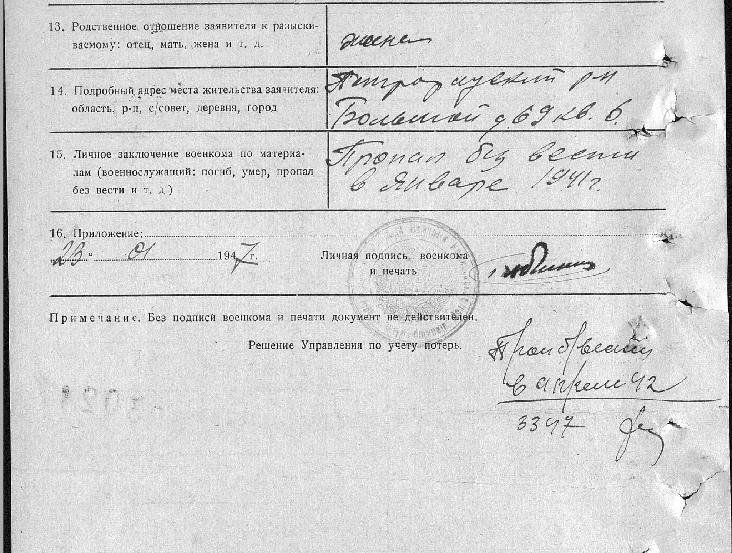 13. Родственное отношение заявителя к разыски-
ваемому: отец, мать, жена и т. д.
жена
14. Подробный адрес места жительства заявителя:
область, р-н, с/совет, деревня, город
Петроградский р-н
Большой д. 69 кв. 6.
15. Личное заключение военкома по материа-
лам (военнослужащий: погиб, умер, пропал
без вести и т, д)
Пропал без вести
в январе 1941 г.
16. Приложение:
23" 01 1947 г.
Личная подпись военкома
и печать
Примечание. Без подписи военкома и печати документ не действителен.
Решение Управления по учету потерь.
в апреле 42
3347